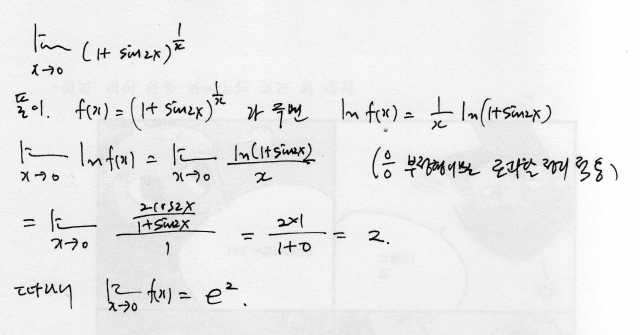 lim x→0 (1+ sin2x)^(1/x)
풀이. f(x) = (1+ sin2x)^(1/x) 라 두면 ln f(x) = 1/x ln(1+sin2x)
lim x→0 ln f(x) = lim x→0 ln(1+sin2x)/x (0/0 부정형이므로 로피탈 정리 적용)
= lim x→0 (2cos2x/(1+sin2x))/1 = (2×1)/(1+0) = 2.
따라서 lim x→0 f(x) = e^2.